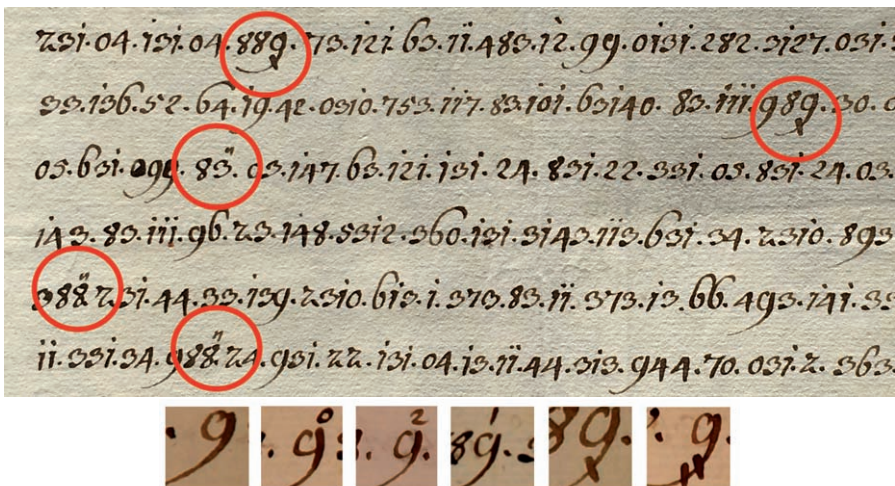 231.04.131.04.889.73.121.63.11.483.12.99.0131.282.3127.031.
33.136.52.64.19.42.0310.753.117.83.101.63140. 83.111.989.30.
05.631. 83.̈ 03.147.63.121.131.24.831.22.331.05.831.24.03.
143.83.111.96.23.148.5312.360.131.3143.113.631.34.2310.893
388̈.231.44.33.139.2310.613.1.373.83.11.373.13.66.493.141.33
11.331.34.988̈.24.931.22.131.04.13.11.44.313.944.70.031.2.363.
9 9⁰ 9² 89¹ 89. 9.